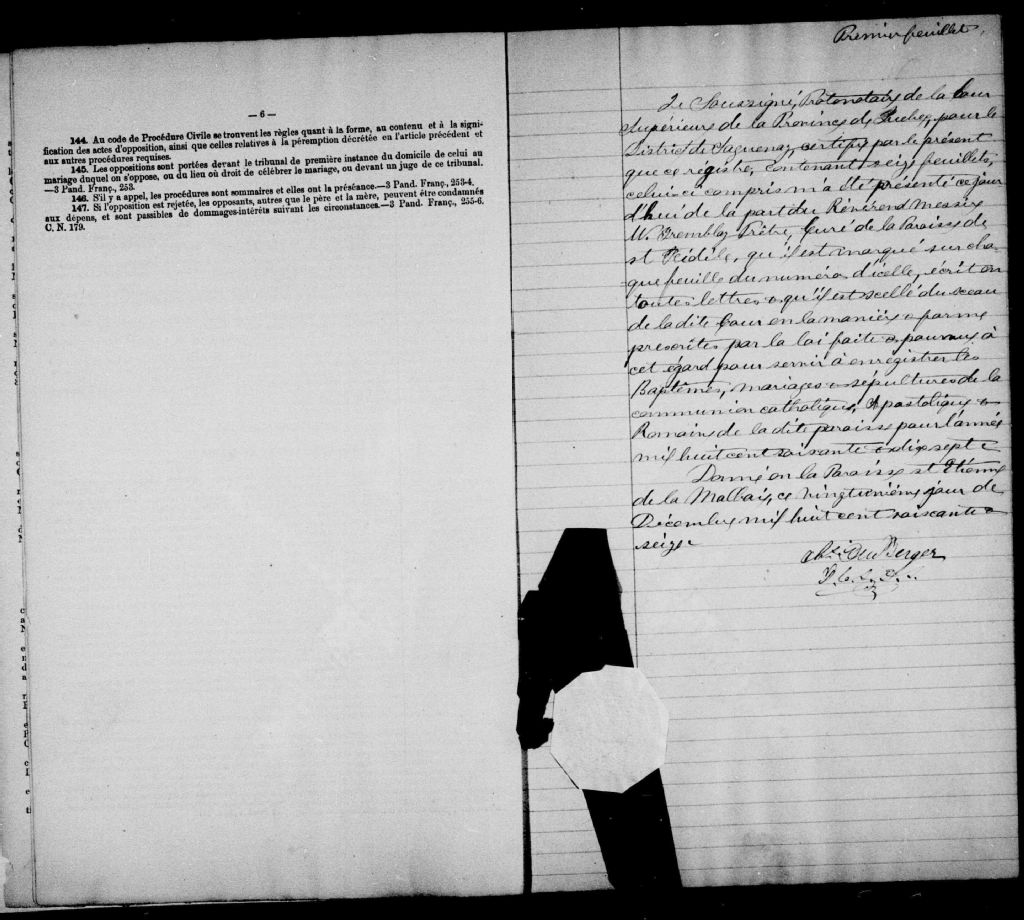 — 6 —
144. Au code de Procédure Civile se trouvent les règles quant à la forme, au contenu et à la signi-
fication des actes d'opposition, ainsi que celles relatives à la péremption décrétée en l'article précédent et
aux autres procédures requises.
145. Les oppositions sont portées devant le tribunal de première instance du domicile de celui au
mariage duquel on s'oppose, ou du lieu où droit de célébrer le mariage, ou devant un juge de ce tribunal.
—3 Pand. Franç., 253.
146. S'il y a appel, les procédures sont sommaires et elles ont la préséance.—3 Pand. Franç., 253-4.
147. Si l'opposition est rejetée, les opposants, autres que le père et la mère, peuvent être condamnés
aux dépens, et sont passibles de dommages-intérêts suivant les circonstances.—3 Pand. Franç., 255-6.
C. N. 179.
Premier feuillet.
Je Soussigné, Protonotaire de la Cour
Supérieure de la Province de Québec, pour le
District de Saguenay, certifie par le présent
que ce régistre, contenant seize feuillets,
celui ci compris m'a été présenté ce jour
d'hui de la part du Révérend Messire
Tremblay Prêtre, Curé de la Paroisse de
st Fidèle, qu'il est marqué sur cha-
que feuille du numéro d'icelle, écrit en
toutes lettres & qu'il est scellé du sceau
de la dite Cour en la manière & forme
prescrites par la loi faite & pourvue à
cet égard pour servir à enregistrer les
Baptêmes, mariages & sépultures de la
communion catholique, Apostolique &
Romaine de la dite paroisse pour l'année
mil huit cent soixante & dix sept
Donné en la Paroisse st Etienne
de la Malbaie, ce vingtunième jour de
Décembre mil huit cent soixante &
seize
Chs. Du Berger
P. C. S.